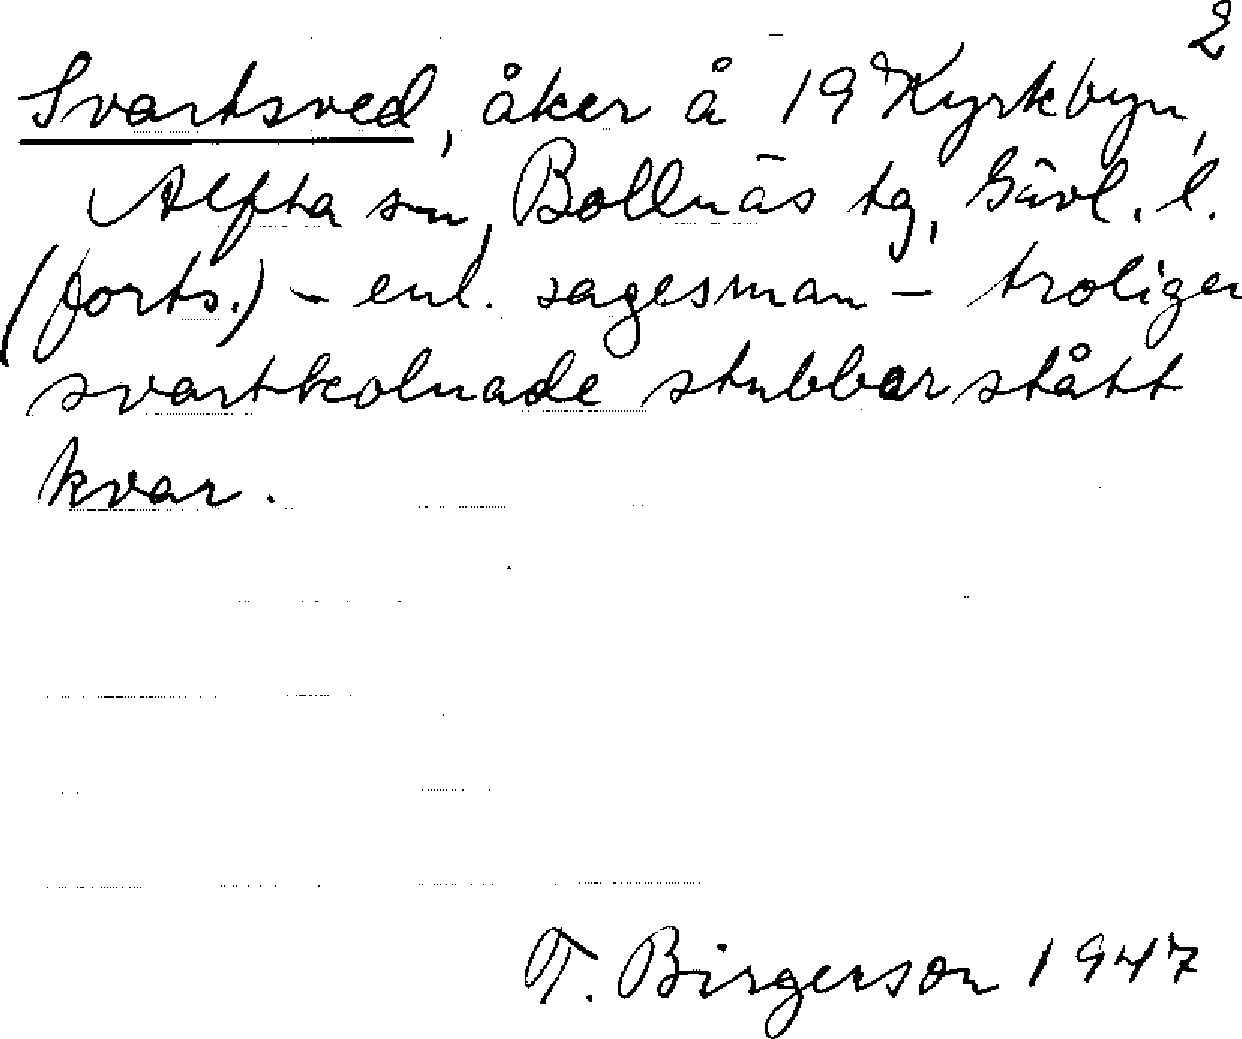 2
Svartsved, åker å 19 Kyrkbyn,
Alfta sn, Bollnäs tg, Gävl. l.
(forts.) - enl. sagesman - troligen
svartkolnade stubbar stått
kvar.
T. Birgerson 1947